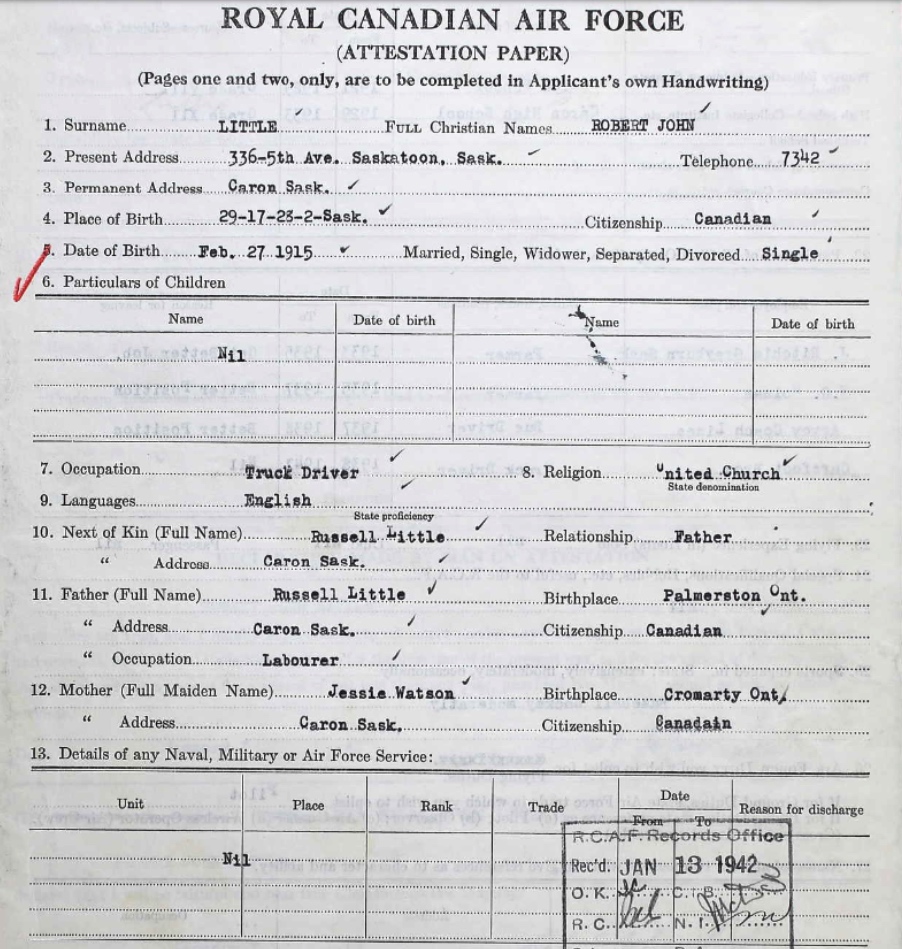 ROYAL CANADIAN AIR FORCE
(ATTESTATION PAPER)
(Pages one and two, only, are to be completed in Applicant's own Handwriting)
1. Surname LITTLE FULL Christian Names ROBERT JOHN
2. Present Address 336-5th Ave. Saskatoon, Sask. Telephone 7342
3. Permanent Address Caron Sask.
4. Place of Birth 29-17-23-2-Sask. Citizenship Canadian
5. Date of Birth Feb. 27 1915 Married, Single, Widower, Separated, Divorced Single
6. Particulars of Children
Name Date of birth Name Date of birth
Nil
7. Occupation Truck Driver 8. Religion United Church
State denomination
9. Languages English
State proficiency
10. Next of Kin (Full Name) Russell Little Relationship Father
" Address Caron Sask.
11. Father (Full Name) Russell Little Birthplace Palmerston Ont.
" Address Caron Sask. Citizenship Canadian
" Occupation Labourer
12. Mother (Full Maiden Name) Jessie Watson Birthplace Cromarty Ont
" Address Caron Sask. Citizenship Canadain
13. Details of any Naval, Military or Air Force Service:
Unit Place Rank Trade Date Reason for discharge
From To
R.C.A.F. Records Office
Nil
Rec'd. JAN 13 1942
O.K. C.B.
R.C. N.I.